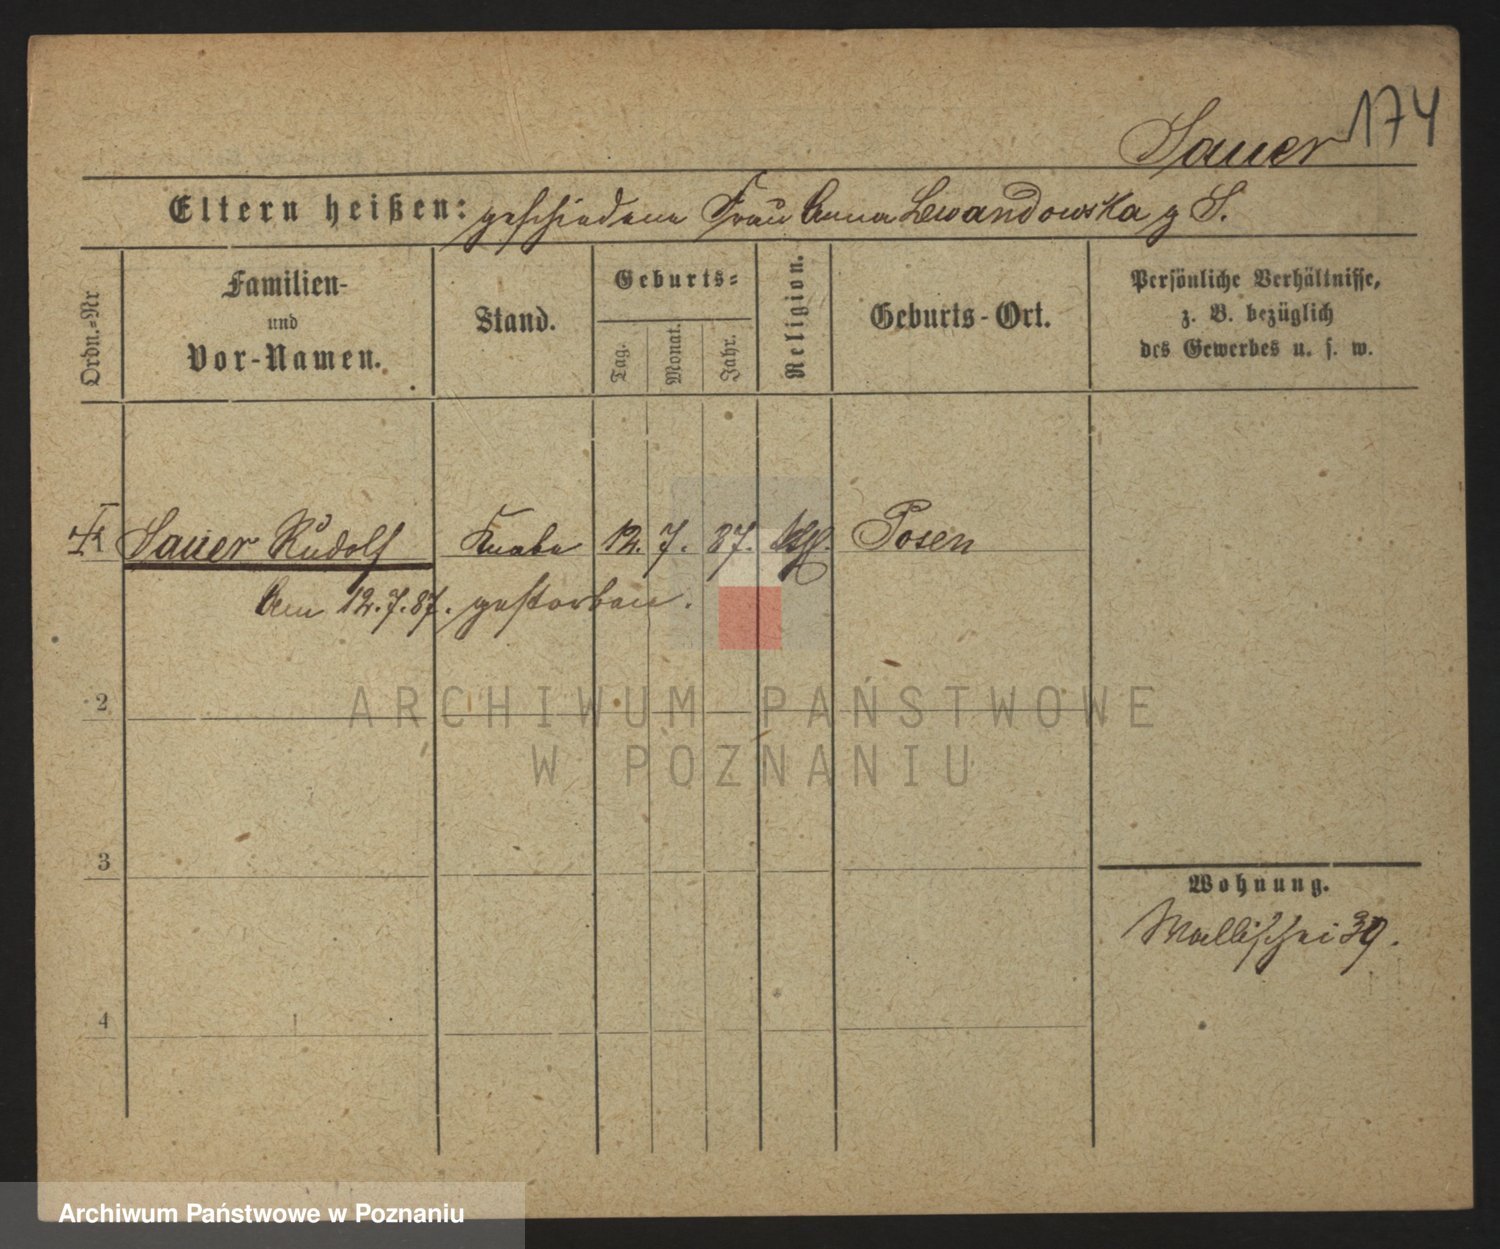 174
Sauer
Eltern heißen: geschiedene Frau Anna Lewandowska g S.
Ordn.=Nr
Familien-
und
Vor-Namen.
Stand.
Geburts=
Tag.
Monat.
Jahr.
Religion.
Geburts-Ort.
Persönliche Verhältnisse,
z. B. bezüglich
des Gewerbes u. s. w.
1 Sauer Rudolf Knabe 12. 7. 87. Posen
Am 12.7.87. gestorben.
2
3
4
Wohnung.
Wallischei 39.
ARCHIWUM PAŃSTWOWE
W POZNANIU
Archiwum Państwowe w Poznaniu